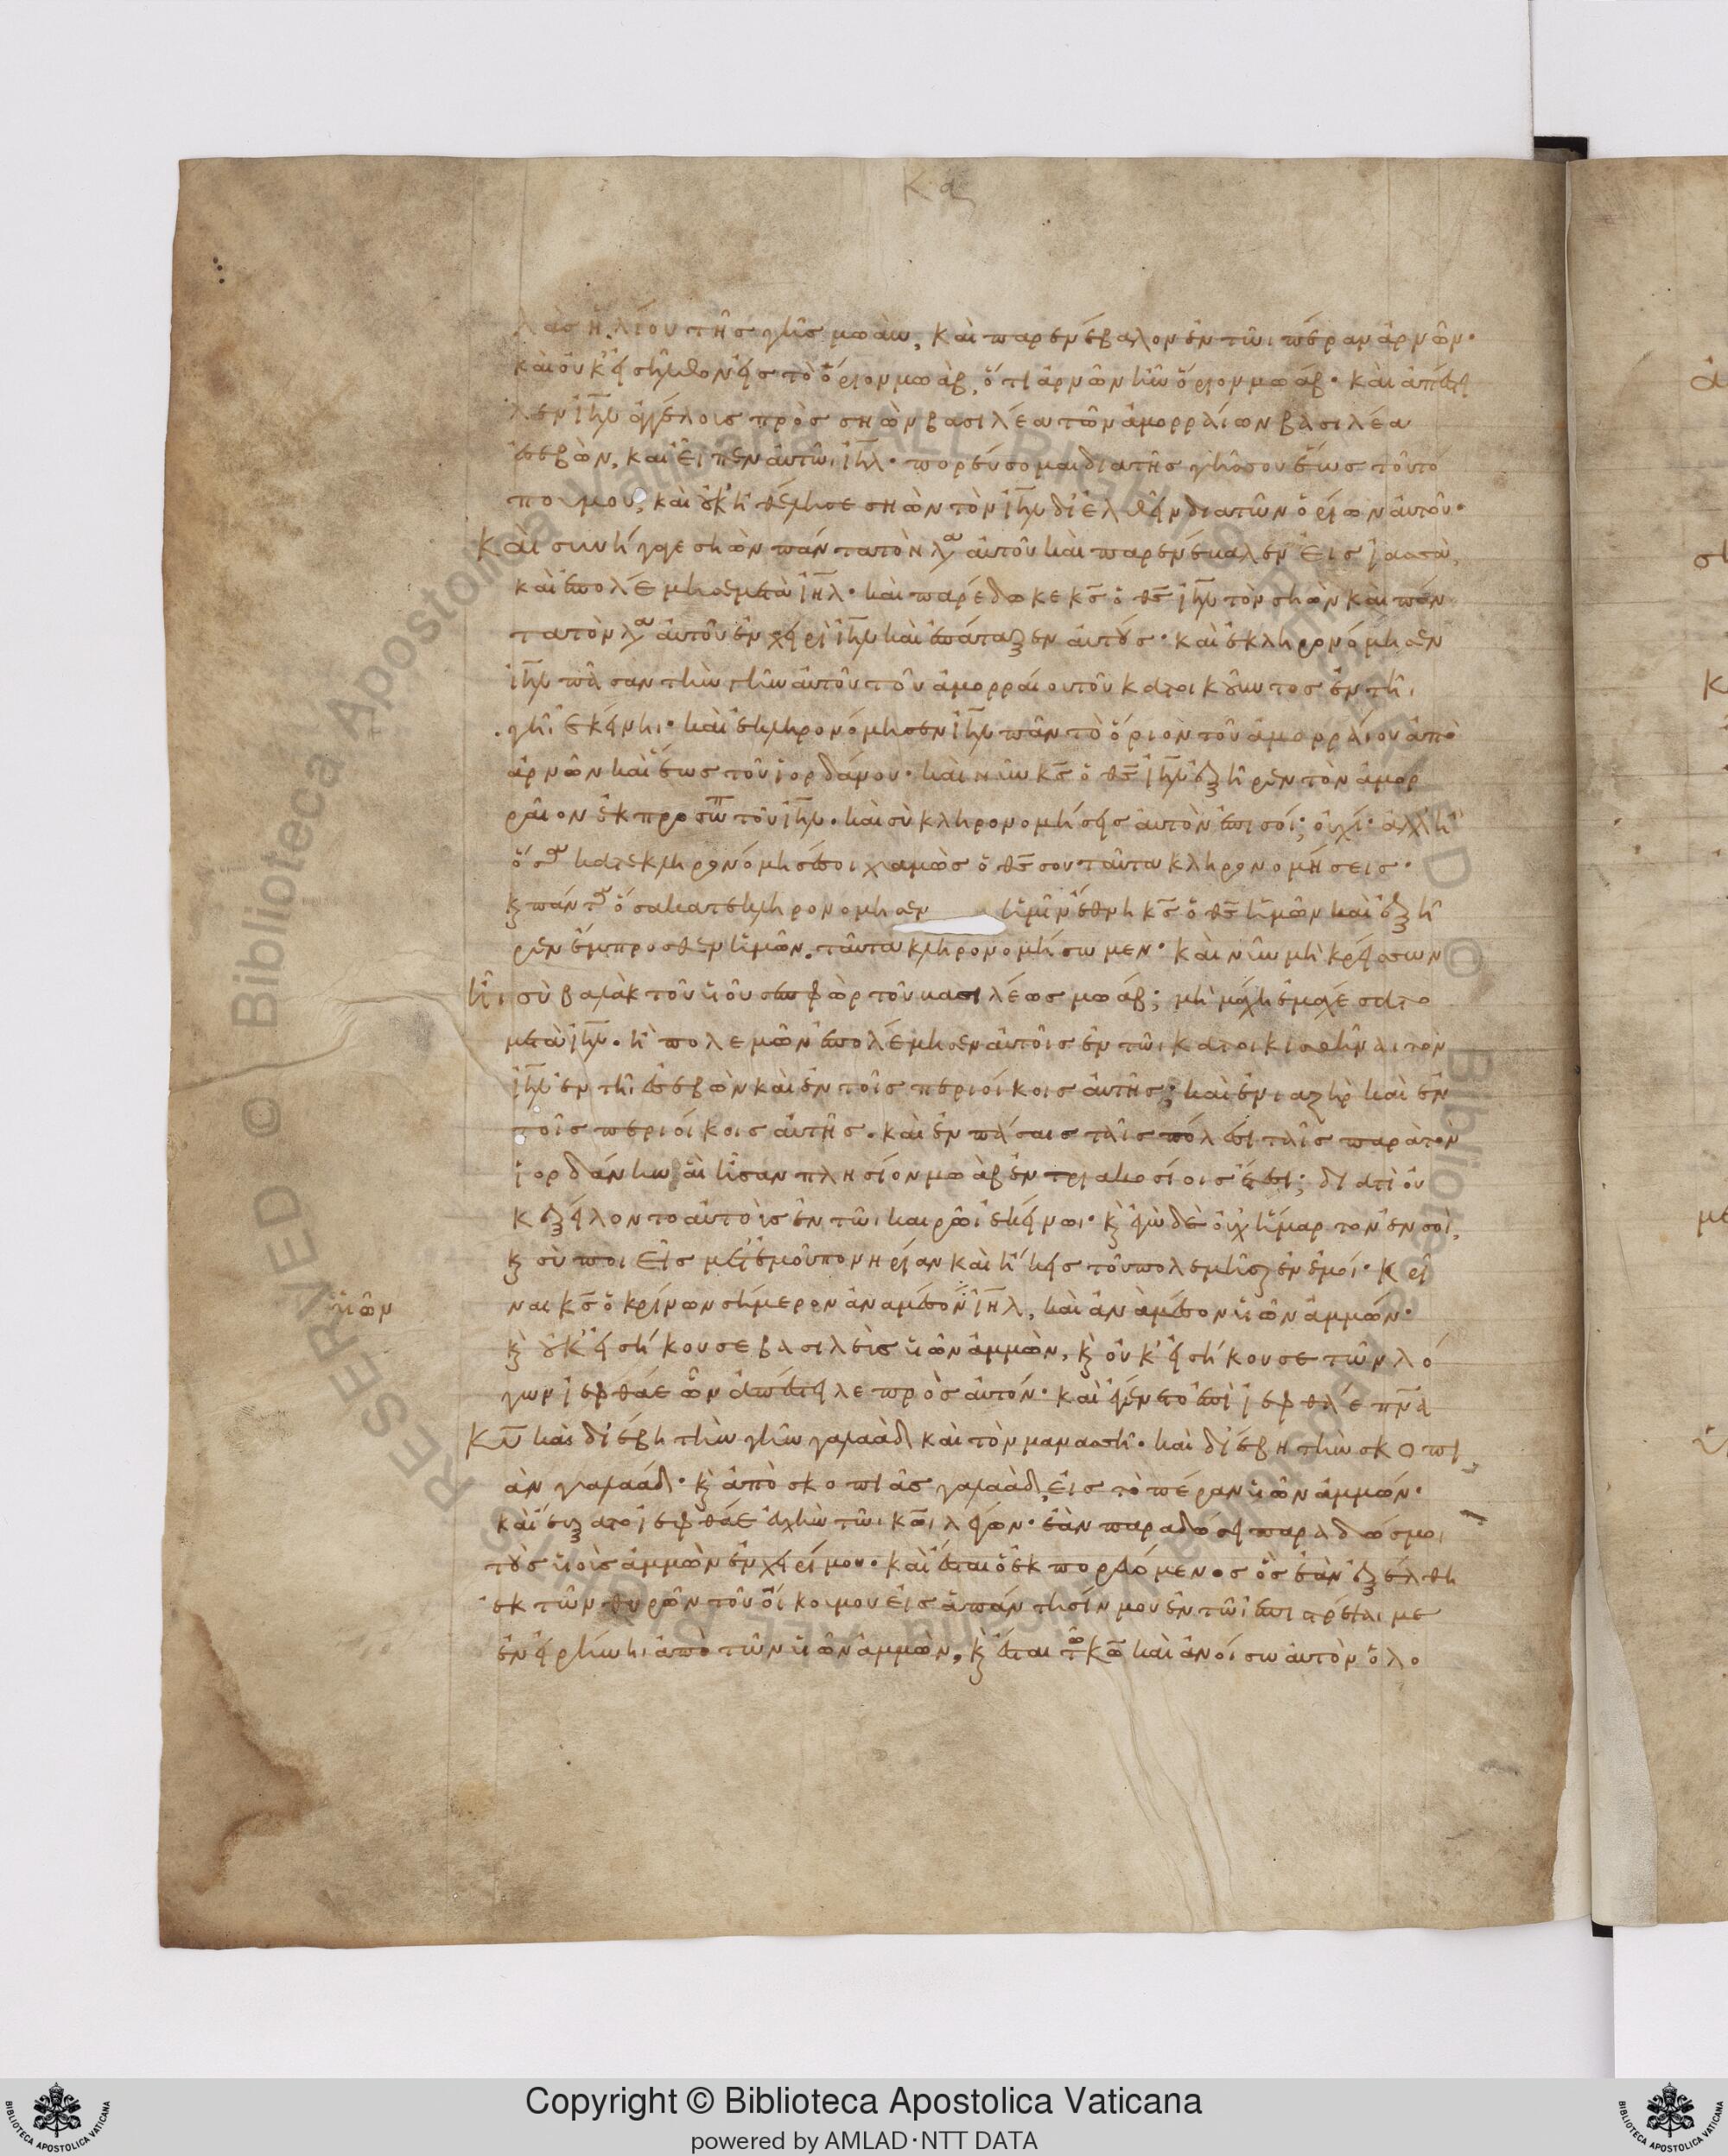 λὰσ ἡλίου τῆσ γῆσ μωὰβ, καὶ παρενέβαλον ἐν τῶι πέραν ἀρνῶν·
καὶ οὐκ εἰσῆλθον εἰσ τὸ ὅριον μωὰβ, ὅτι ἀρνῶν ἦν ὅριον μωάβ· καὶ ἀπέστει
λεν ἰηλ ἀγγέλουσ πρὸσ σηὼν βασιλέα τῶν ἀμορραίων βασιλέα
ἐσεβὼν, καὶ εἶπεν αὐτῶ ἰηλ· πορεύσομαι διὰ τῆσ γῆσ σου ἕωσ τοῦ τό
που μου, καὶ οὐκ ἠθέλησε σηὼν τὸν ἰηλ διελθεῖν διὰ τῶν ὁρίων αὐτοῦ·
Καὶ συνήγαγε σηὼν πάντα τὸν λαὸν αὐτοῦ καὶ παρενέβαλεν εἰσ ἰασσὰ,
καὶ ἐπολέμησεν μετὰ ἰηλ· καὶ παρέδωκε κσ ὁ θσ ἰηλ τὸν σηὼν καὶ πάν
τα τὸν λαὸν αὐτοῦ ἐν χειρὶ ἰηλ καὶ ἐπάταξεν αὐτούσ· καὶ ἐκληρονόμησεν
ἰηλ πᾶσαν τὴν γῆν αὐτοῦ τοῦ ἀμορραίου τοῦ κατοικοῦντοσ ἐν τῆι
γῆι ἐκείνηι· καὶ ἐκληρονόμησεν ἰηλ πᾶν τὸ ὅριον τοῦ ἀμορραίου ἀπὸ
ἀρνῶν καὶ ἕωσ τοῦ ἰορδάνου· καὶ νῦν κσ ὁ θσ ἰηλ ἐξῆρεν τὸν ἀμορ
ραῖον ἐκ προσώπου τοῦ ἰηλ. καὶ σὺ κληρονομήσεισ αὐτὸν ἐπὶ σοί; οὐχί· ἀλλ' ἢ
ὅσα κατεκληρονόμησέ σοι χαμὼσ ὁ θσ σου ταῦτα κληρονομήσεισ·
κ πάντα ὅσα κατεκληρονομησεν ἡμῖν ἔθνη κσ ὁ θσ ἡμῶν καὶ ἐξῆ
ρεν ἔμπροσθεν ἡμῶν, ταῦτα κληρονομήσωμεν· καὶ νῦν μὴ κρείσσων
εἶ σὺ βαλὰκ τοῦ υἱοῦ σεπφὼρ τοῦ βασιλέωσ μωάβ; μὴ μάχη ἐμαχέσατο
μετὰ ἰηλ. ἢ πολεμῶν ἐπολέμησεν αὐτοῖσ ἐν τῶι κατοικισθῆναι τὸν
ἰηλ ἐν τῆι ἐσεβὼν καὶ ἐν τοῖσ περιοίκοισ αὐτῆσ; καὶ ἐν ιαζὴρ καὶ ἐν
τοῖσ περιοίκοισ αὐτῆσ. καὶ ἐν πάσαισ ταῖσ πόλεσι ταῖσ παρὰ τὸν
ἰορδάνην αἳ ἦσαν πλησίον μωὰβ ἐν τριακοσίοισ ἔτεσι; διατί οὐ
κ ἐξείλοντο αὐτοὺσ ἐν τῶι καιρῶι ἐκείνωι· κ ἐγὼ δὲ οὐχ ἥμαρτον ἐν σοὶ,
κ σὺ ποιεῖσ μετ' ἐμοῦ πονηρίαν καὶ ἥκεισ τοῦ πολεμῆσαι ἐν ἐμοί· κρί
ναι κσ ὁ κρίνων σήμερον ἀναμέσον ἰηλ, καὶ ἀναμέσον υἱῶν ἀμμών·
υἱῶν
κ οὐκ εἰσήκουσε βασιλεὺσ υἱῶν ἀμμὼν, κ οὐκ εἰσήκουσε τῶν λό
γων ἰεφθάε ὧν ἀπέστειλε πρὸσ αὐτόν· καὶ ἐγένετο ἐπὶ ἰεφθάε πνα
Κυ καὶ διέβη τὴν γῆν γαλαὰδ καὶ τὸν μανασσῆ· καὶ διέβη τὴν σκοπι
ὰν γαλαάδ· κ ἀπὸ σκοπιᾶσ γαλαὰδ, εἰσ τὸ πέραν υἱῶν ἀμμών·
καὶ εὔξατο ἰεφθάε εὐχὴν τῶι κω λέγων· ἐὰν παραδώσει παραδῶσ μοι
τοὺσ υἱοὺσ ἀμμὼν ἐν χειρί μου· καὶ ἔσται ὁ ἐκπορευόμενοσ ὃσ ἐὰν ἐξέλθη
ἐκ τῶν θυρῶν τοῦ οἴκου μου εἰσ ἀπάντησίν μου ἐν τῶ ἐπιστρέψαι με
ἐν εἰρήνηι ἀπὸ τῶν υἱῶν ἀμμὼν, κ ἔσται τῶ κω καὶ ἀνοίσω αὐτὸν ὁλο
Copyright © Biblioteca Apostolica Vaticana
powered by AMLAD·NTT DATA